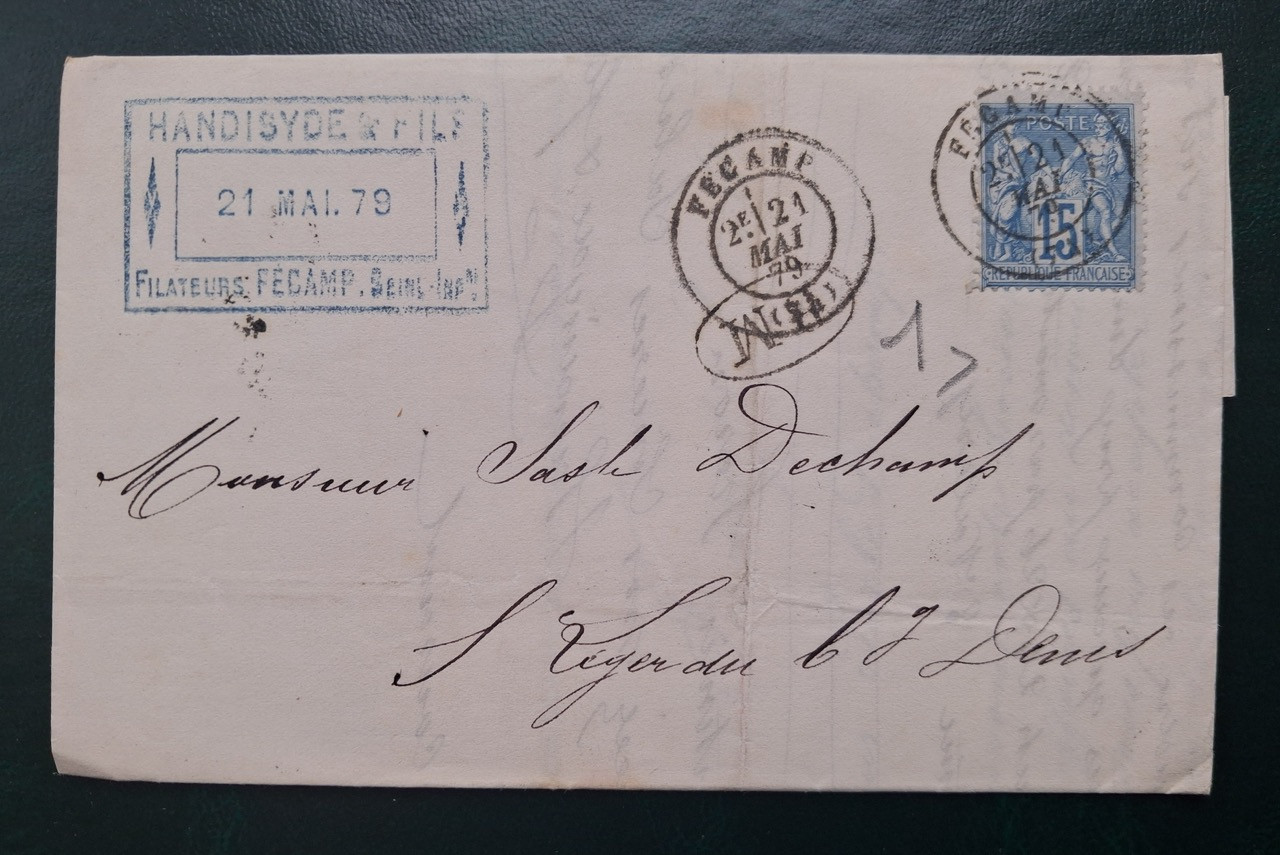 HANDISYDE & FILS
21 MAI. 79
FILATEURS. FÉCAMP. SEINE-INFRE
FÉCAMP
2E 21
MAI
79
FÉCAMP
2E 21
MAI
79
POSTE
15
REPUBLIQUE FRANCAISE
1
Monsieur Dechamp
St Léger du Bg Denis